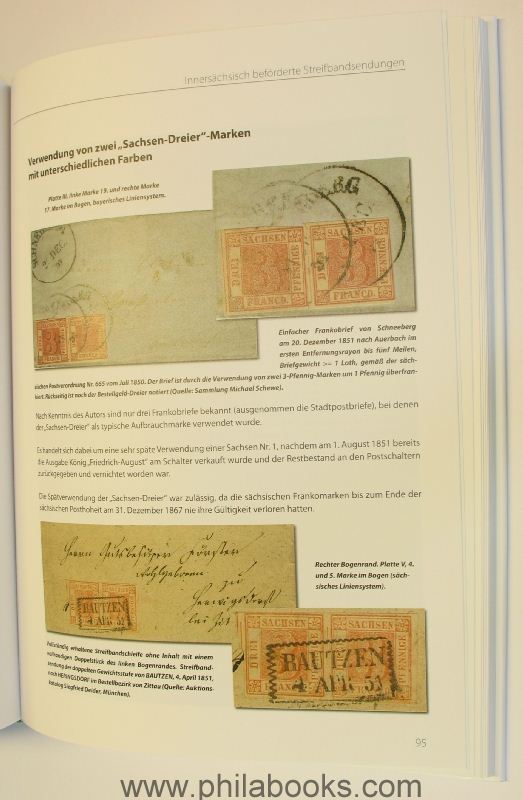 Innersächsisch beförderte Streifbandsendungen
Verwendung von zwei „Sachsen-Dreier"-Marken
mit unterschiedlichen Farben
Platte III, linke Marke 19. und rechte Marke
17. Marke im Bogen, bayerisches Liniensystem.
SACHSEN
SACHSEN
DREI
PFENNIGE
DREI
PFENNIGE
3
3
FRANCO.
FRANCO.
Einfacher Frankobrief von Schneeberg
am 20. Dezember 1851 nach Auerbach im
ersten Entfernungsrayon bis fünf Meilen,
Briefgewicht >= 1 Loth, gemäß der säch-
sischen Postverordnung Nr. 665 vom Juli 1850. Der Brief ist durch die Verwendung von zwei 3-Pfennig-Marken um 1 Pfennig überfran-
kiert. Rückseitig ist noch der Bestellgeld-Dreier notiert (Quelle: Sammlung Michael Schewe).
Nach Kenntnis des Autors sind nur drei Frankobriefe bekannt (ausgenommen die Stadtpostbriefe), bei denen
der „Sachsen-Dreier" als typische Aufbrauchmarke verwendet wurde.
Es handelt sich dabei um eine sehr späte Verwendung einer Sachsen Nr. 1, nachdem am 1. August 1851 bereits
die Ausgabe König „Friedrich-August" am Schalter verkauft wurde und der Restbestand an den Postschaltern
zurückgegeben und vernichtet worden war.
Die Spätverwendung der „Sachsen-Dreier" war zulässig, da die sächsischen Frankomarken bis zum Ende der
sächsischen Posthoheit am 31. Dezember 1867 nie ihre Gültigkeit verloren hatten.
Herrn Gutsbesitzer Förster
Wohlgeboren
zu
bei
BAUTZEN
4 APR 51
Rechter Bogenrand. Platte V, 4.
und 5. Marke im Bogen (säch-
sisches Liniensystem).
SACHSEN
SACHSEN
DREI
PFENNIGE
BAUTZEN
4 APR 51
Vollständig erhaltene Streifbandschleife ohne Inhalt mit einem
vollrandigen Doppelstück des linken Bogenrandes. Streifband-
sendung der doppelten Gewichtsstufe von BAUTZEN, 4. April 1851,
nach HERWIGSDORF im Bestellbezirk von Zittau (Quelle: Auktions-
katalog Siegfried Deider, München).
95
www.philabooks.com